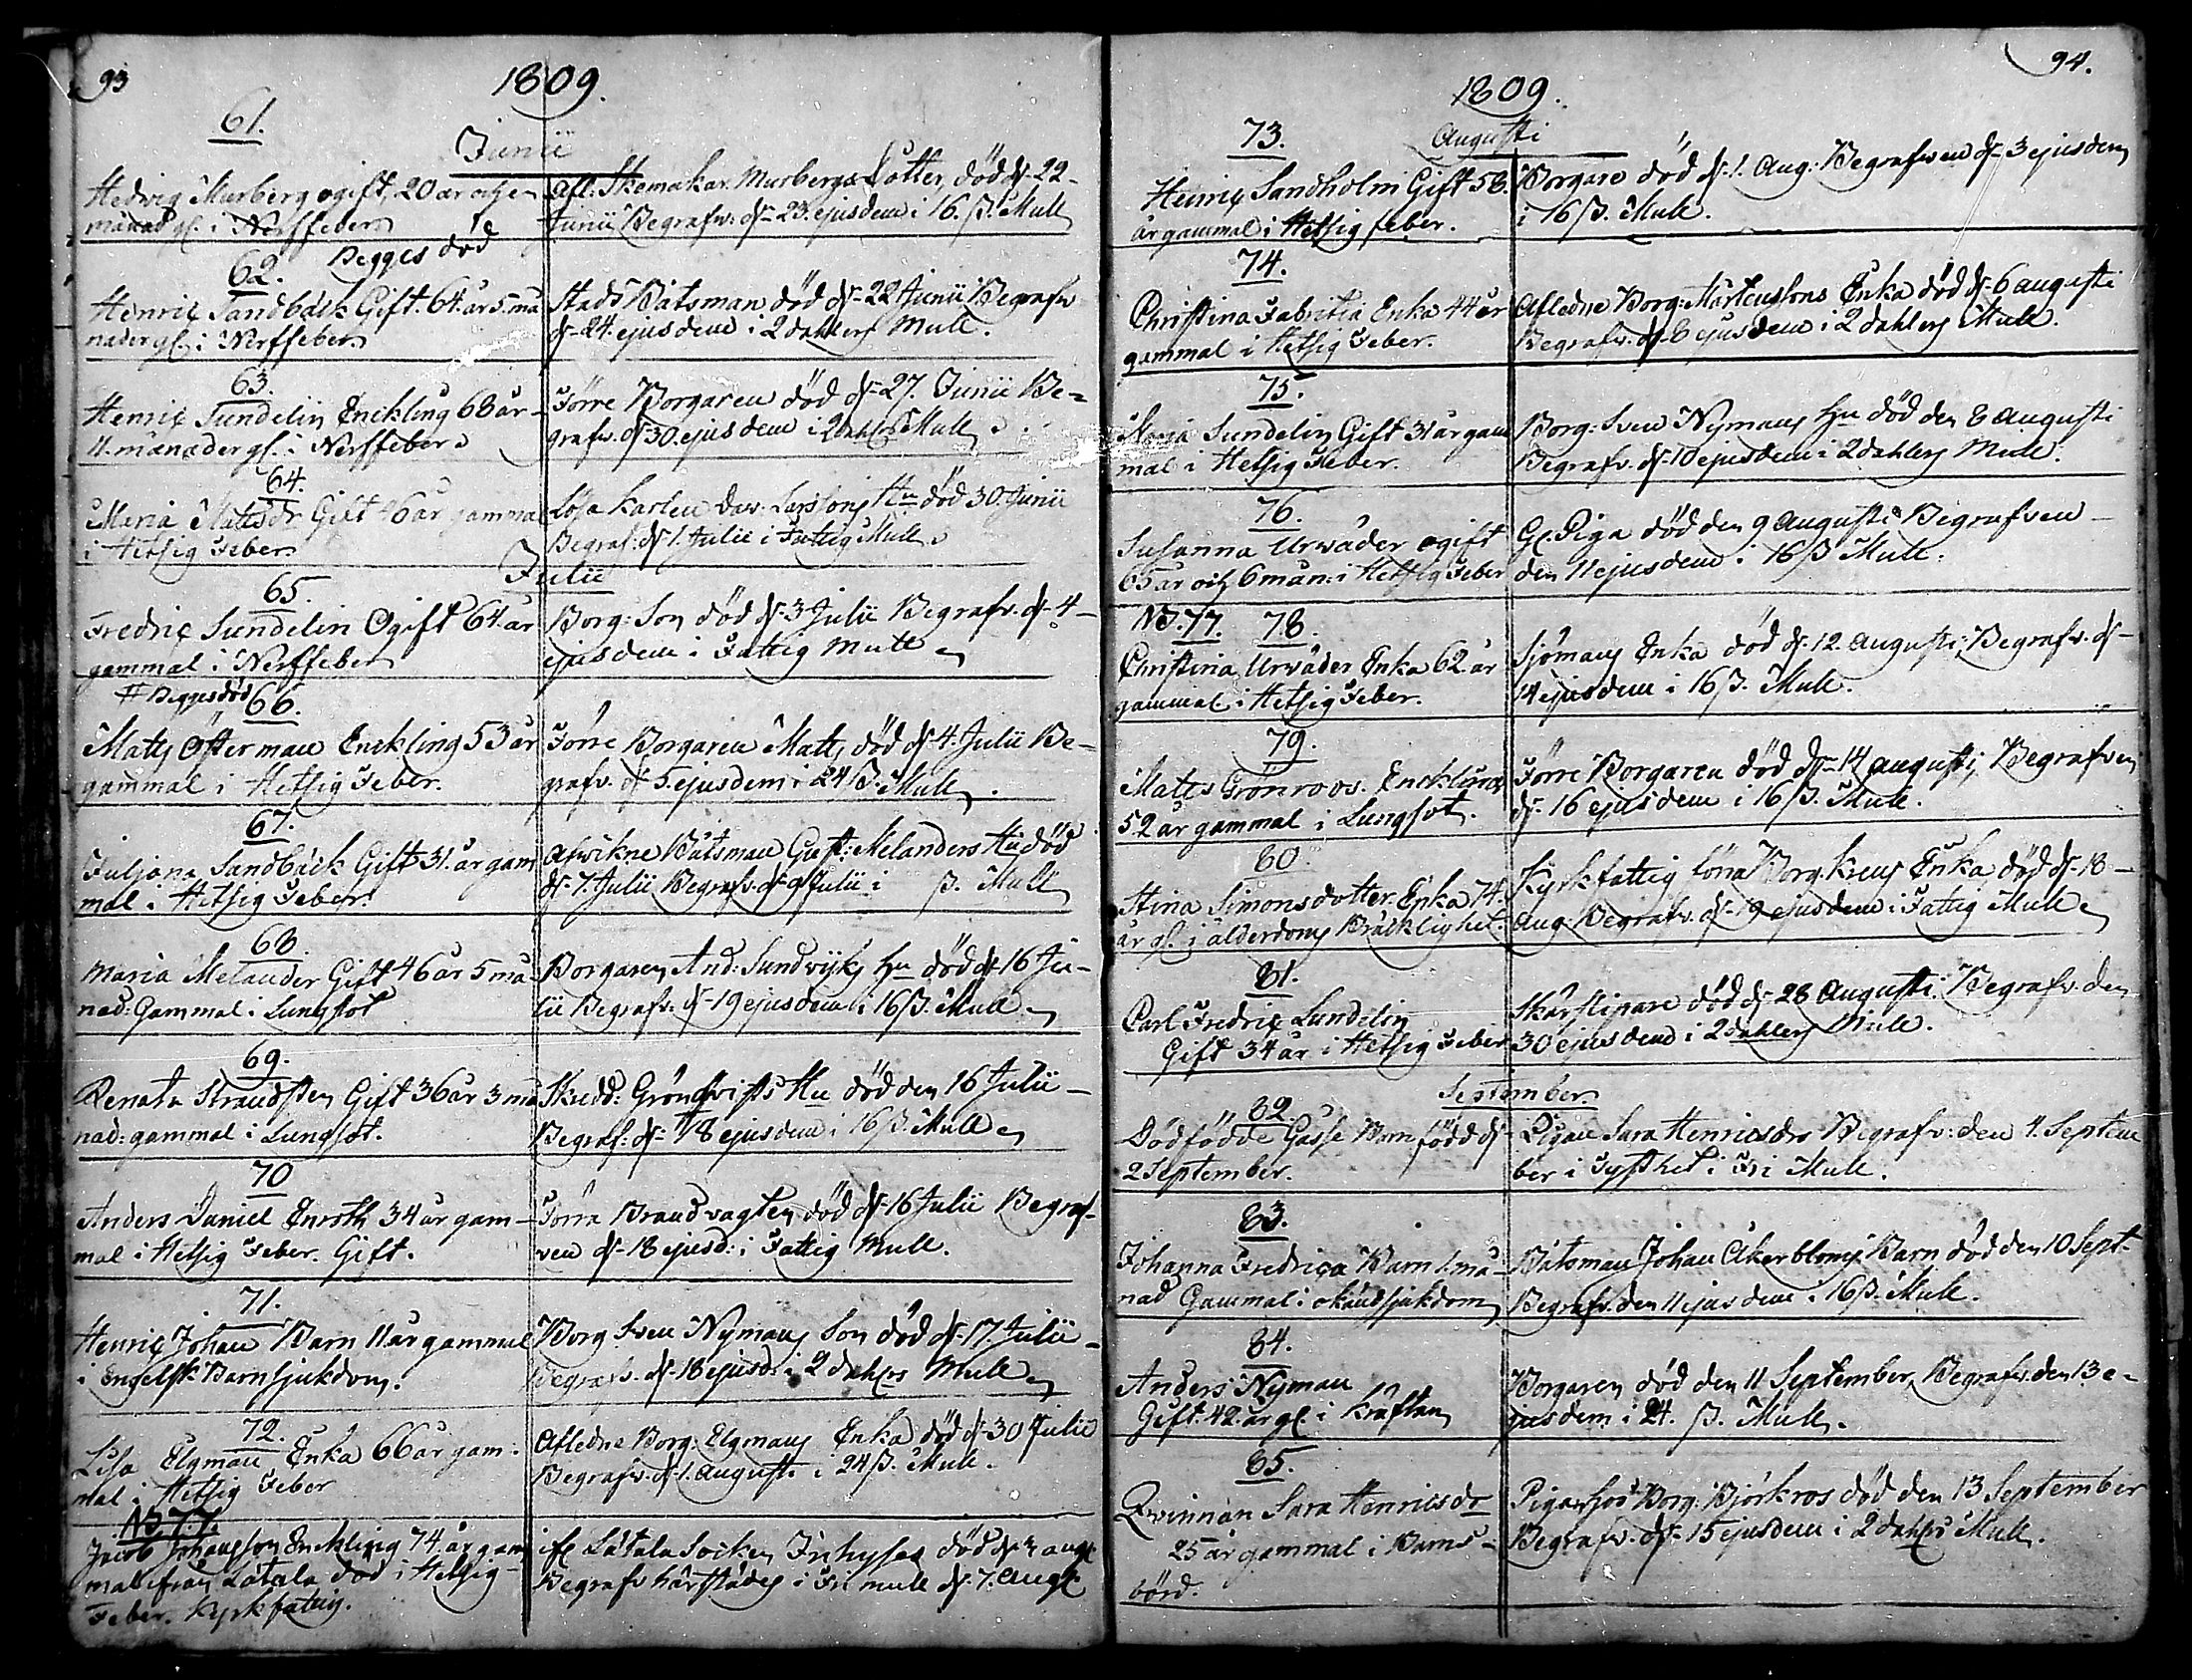 93
1809.
61.
Junii
Hedvig Murberg ogift, 20 år och en
månad gl. i Nerffeber
Afl: Skomakar. Murbergs Dotter, död d. 22
Junii Begrafv: d. 23. ejusdem i 16. ß. Mull
Begges död
62.
Henric Sandbäck Gift. 64. år 5. må
nader gl. i Nerffeber
Stads Båtsman död d. 22 Junii Begrafv
d. 24. ejusdem i 2 dahlers Mull.
63.
Henric Sundelin Enckling 68 år
4. månader gl. i Nerffeber
Förre Borgaren död d. 27. Junii Be=
grafv. d. 30. ejusdem i 2 dahlers Mull
64.
Maria Mattsdr Gift 46 år gammal
i Hetsig Feber
Lösa Karlen Dav: Larssons Hu död 30. Junii
Begraf: d. 1. Julii i Fattig Mull
Julii
65.
Fredric Sundelin Ogift 64. år
gammal i Nerffeber
Borg: Son död d. 3 Julii Begrafv. d. 4
ejusdem i Fattig Mull
# Begges död
66.
Matts Österman Enckling 53 år
gammal i Hetsig Feber.
Förre Borgaren Matts död d. 4. Julii Be-
grafv. d. 5. ejusdem i 24 ß. Mull.
67.
Juljana Sandbäck Gift 31. år gam
mal i Hetsig Feber.
Afvikne Båtsman Gust: Melanders Hu död
d. 7. Julii Begrafv. d. 9 Julii i ß. Mull
68.
Maria Melander Gift 46 år 5 må
nad: Gammal i Lungsot
Borgaren And: Sundvijks Hu död d. 16 Ju-
lii Begrafv. d. 19 ejusdem i 16 ß. Mull
69.
Renata Strandsten Gift 36 år 3 må
nad: gammal i Lungsot.
Skredd: Grönqvists Hu död den 16 Julii
Begraf: d. 18 ejusdem i 16 ß. Mull
70
Anders Daniel 34 år gam-
mal i Hetsig Feber. Gift.
Förra Brandvagten död d. 16 Julii Begraf-
ven d. 18 ejusd: i Fattig Mull.
71.
Henric Johan Barn 11 år gammal
i Engelsk Barnsjukdom.
Borg Sven Nymans Son död d. 17. Julii
Begrafv. d. 18 ejusd: i 2 dahlers Mull
72.
Lisa Elgman Enka 66 år gam:
mal i Hetsig Feber
Afledne Borg: Elgmans Enka död d. 30 Julii
Begrafv. d. 1. Augusti i 24 ß. Mull.
NB. 77.
Jacob Johansson Enckling 74. år gam
mal ifrån Låtala död i Hetsig
Feber. Kyrkfattig.
Låtala Socken Inhyses död d. 3 aug.
Begrafv härstädes i Fri mull d. 7. Aug.
94.
1809.
Augusti
73.
Henric Sandholm Gift 58.
år gammal i Hetsig feber.
Borgare död d. 1. Aug: Begrafven d. 3 ejusdem
i 16 ß. Mull.
74.
Christina Fabritia Enka 44 år
gammal i Hetsig Feber.
Afledne Borg: Mårtensons Enka död d. 6 augusti
Begrafv. d. 8 ejusdem i 2 dahlers Mull.
75.
Maria Sundelin Gift 31 år gam
mal i Hetsig Feber.
Borg: Sven Nymans Hu död den 8 Augusti
Begrafv. d. 10 ejusdem i 2 dahlers Mull.
76.
Susanna Urväder ogift
65 år och 6 mån: i Hetsig Feber
Gl. Piga död den 9 Augusti Begrafven
den 11 ejusdem i 16 ß Mull.
NB. 77. 78.
Christina Urväder Enka 62 år
gammal i Hetsig Feber.
Sjömans Enka död d. 12. Augusti, Begrafv. d.
14 ejusdem i 16 ß. Mull.
79.
Matts Grönroos. Enckling
52 år gammal i Lungsot.
Förre Borgaren död d. 14 augusti, Begrafven
d. 16 ejusdem i 16 ß. Mull.
80.
Stina Simonsdotter Enka 74.
år gl. i ålderdoms Bräcklighet.
Kyrkfattig Borg. Enka död d. 18
Aug: Begrafv. d. 19 ejusdem i Fattig Mull
81.
Carl Fredric Lundelin
Gift 34 år i Hetsig Feber
Skärslipare död d. 28 Augusti. Begrafv. den
30 ejusdem i 2 dahlers Mull.
September.
82.
Dödfödde Gosse Barn född d.
2 September.
Pigan Sara Henricsdrs Begrafv: den 4. Septem
ber i Tysthet i Fri Mull.
83.
Johanna Fredrica Barn 1. må-
nad Gammal i okänd sjukdom
Båtsman Johan Åkerbloms Barn död den 10 Sept.
Begrafv. den 11 ejusdem i 16 ß. Mull.
84.
Anders Nyman
Gift. 42 år gl. i Kräftan
Borgaren död den 11 September, Begrafv. den 13 e-
jusdem i 24. ß. Mull.
85.
Qvinnan Sara Henricsdr
25 år gammal i Barns-
börd.
Piga hos Borg: Björkros död den 13 September
Begrafv. d. 15 ejusdem i 2 dahlers Mull.